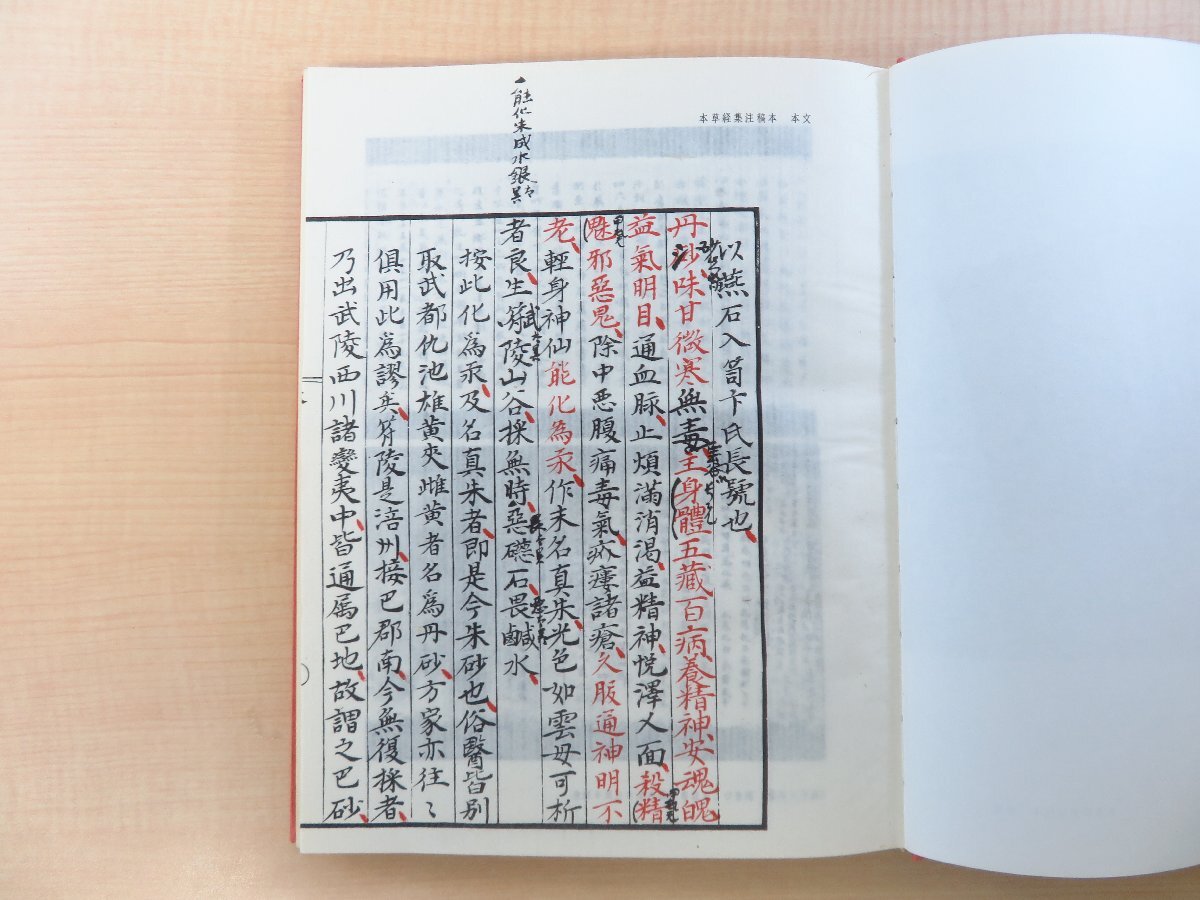 本草経集注稿本　本文
能化朱成水銀
以燕石入笥卞氏長號也
丹沙味甘微寒無毒主身體五藏百病養精神安魂魄
益氣明目通血脉止煩滿消渴益精神悅澤人面殺精
魅邪惡鬼除中悪腹痛毒氣疥瘻諸瘡久服通神明不
老輕身神仙能化為汞作末名真朱光色如雲母可析
者良生符陵山谷採無時惡礠石畏鹹水
按此化為汞及名真朱者即是今朱砂也俗醫皆別
取武都仇池雄黄夾雌黄者名爲丹砂方家亦往〻
俱用此爲謬矣符陵是涪州接巴郡南今無復採者
乃出武陵西川諸蠻夷中皆通属巴地故謂之巴砂